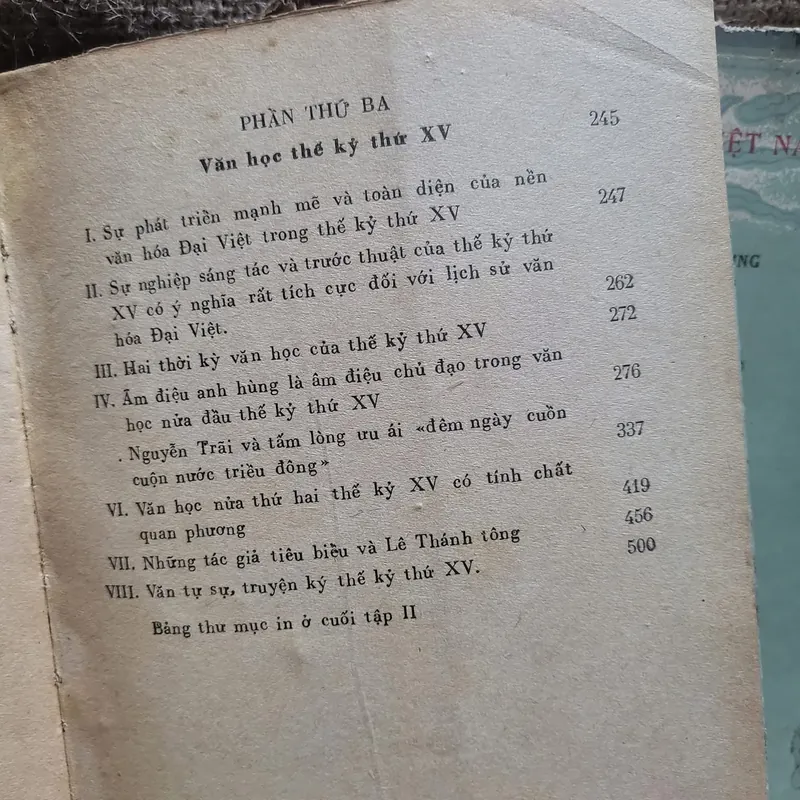 PHẦN THỨ BA
Văn học thế kỷ thứ XV 245
I. Sự phát triển mạnh mẽ và toàn diện của nền
văn hóa Đại Việt trong thế kỷ thứ XV 247
II. Sự nghiệp sáng tác và trước thuật của thế kỷ thứ
XV có ý nghĩa rất tích cực đối với lịch sử văn
hóa Đại Việt. 262
III. Hai thời kỳ văn học của thế kỷ thứ XV 272
IV. Âm điệu anh hùng là âm điệu chủ đạo trong văn
học nửa đầu thế kỷ thứ XV 276
. Nguyễn Trãi và tấm lòng ưu ái «đêm ngày cuồn
cuộn nước triều đông» 337
VI. Văn học nửa thứ hai thế kỷ XV có tính chất
quan phương 419
VII. Những tác giả tiêu biểu và Lê Thánh tông 456
VIII. Văn tự sự, truyện ký thế kỷ thứ XV. 500
Bảng thư mục in ở cuối tập II
ỆT NA
UNG